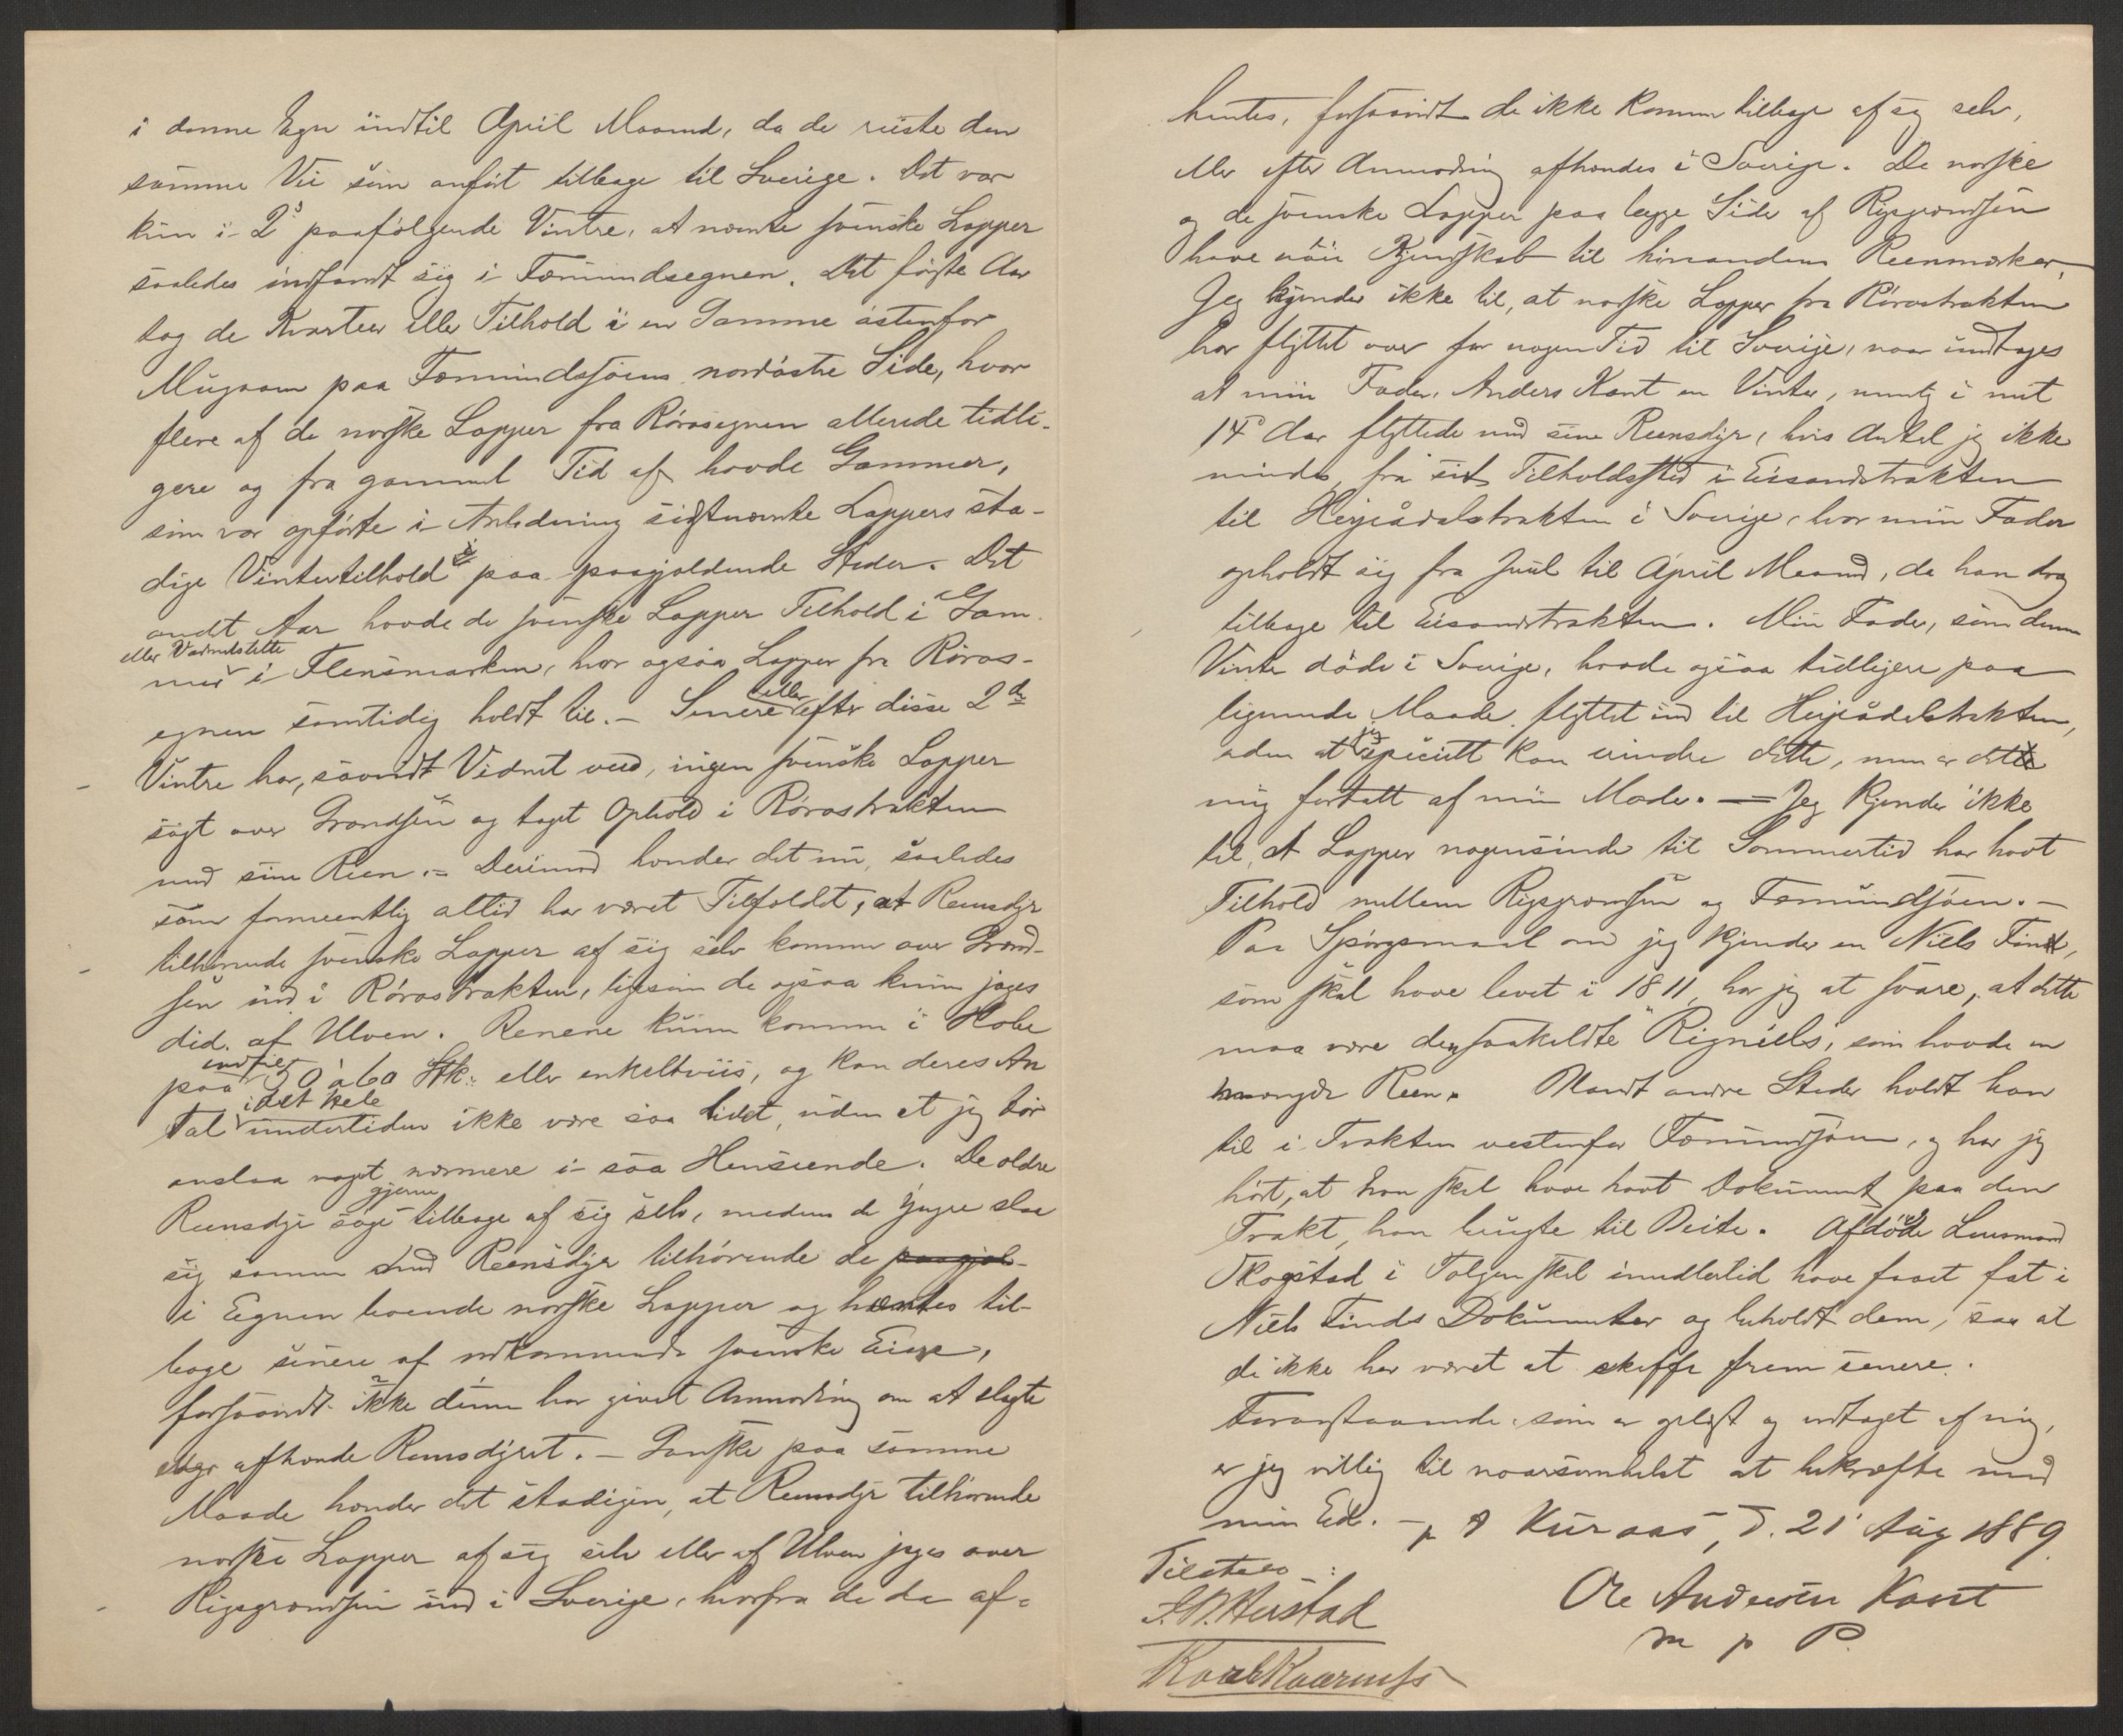 i denne Egn indtil April Maaned, da de reiste den
samme Vei som anført tilbage til Sverige. Det var
kun i 2 paafølgende Vintre, at nævnte svenske Lapper
saaledes indfandt sig i Fæmundsegnen. Det første Aar
tog de Kvarteer eller Tilhold i en Gamme østenfor
Mugaaen paa Fæmundsjøens nordøstre Side, hvor
flere af de norske Lapper fra Rørosegnen allerede tidli-
gere og fra gammel Tid af havde Gammer,
som var opførte i Anledning sidstnævnte Lappers sta-
dige Vintertilhold paa paagjældende Steder. Det
andet Aar havde de svenske Lapper Tilhold i Gam-
eller Vadmelstelte
mer i Flensmarken, hvor ogsaa Lapper fra Røros-
egnen samtidig holdt til. – Senere eller efter disse 2de
Vintre har, saavidt Vidnet veed, ingen svenske Lapper
søgt over Grændsen og taget Ophold i Rørostrakten
med sine Reen. – Derimod hænder det nu, saaledes
som formeentlig altid har været Tilfældet, at Reensdyr
tilhørende svenske Lapper af sig selv komme over Grænd-
sen ind i Rørostrakten, ligesom de ogsaa kunne jages
did af Ulven. Renene kunne komme i Flokke
indtil
paa 50 à 60 Stk. eller enkeltviis, og kan deres An
i det Hele
tal undertiden ikke være saa lidet, uden at jeg tør
anslaa noget nærmere i saa Henseende. De ældre
gjerne
Reensdyr søge tilbage af sig selv, medens de yngre slaa
sig sammen med Reensdyr tilhørende de paagjæl-
i Egnen boende norske Lapper og hentes til-
bage senere af vedkommende svenske Eiere,
forsaavidt ikke denne har givet Anmodning om at slagte
eller afhænde Reensdyret. – Ganske paa samme
Maade hænder det stadigen, at Reensdyr tilhørende
norske Lapper af sig selv eller af Ulven jages over
Rigsgrændsen ind i Sverige, hvorfra de da af-
hentes, forsaavidt de ikke komme tilbage af sig selv,
eller efter Anmodning afhændes i Sverige. De norske
og de svenske Lapper paa begge Sider af Rigsgrændsen
have nøie Kjendskab til hinandens Reenmærker,
Jeg kjender ikke til, at norske Lapper fra Rørostrakten
har flyttet over for nogen Tid til Sverige, naar undtages
at min Fader, Anders Kant en Vinter, nemlig i mit
14de Aar flyttede med sine Reensdyr, hvis Antal jeg ikke
mindes, fra sit Tilholdssted i Eisandstrakten
til Herjeådalstrakten i Sverige, hvor min Fader
opholdt sig fra Juul til April Maaned, da han drog
tilbage til Eisandstrakten. Min Fader, som denne
Vinter døde i Sverige, havde ogsaa tidligere paa
lignende Maade flyttet ind til Herjeådalstrakten,
uden at jeg specielt kan erindre dette, men er dette
mig fortalt af min Moder. – Jeg kjender ikke
til, at Lapper nogensinde til Sommertid har havt
Tilhold mellem Rigsgrændsen og Fæmundsjøen. –
Paa Spørgsmaal om jeg kjender en Niels Find,
som skal have levet i 1811, har jeg at svare, at dette
maa være den saakaldte "Rigniels", som havde en
mængde Reen. Blandt andre Steder holdt han
til i Trakten vestenfor Fæmundsjøen, og har jeg
hørt, at han skal have havt Dokument paa den
Trakt, han brugte til Beite. Afdøde Lensmand
Skogstad i Tolgen skal imidlertid have faaet fat i
Niels Finds Dokumenter og beholdt dem, saa at
de ikke har været at skaffe frem senere.
Foranstaaende som er oplæst og vedtaget af mig,
er jeg villig til naarsomhelst at bekræfte med
min Ed. – p. t. Kuraas, d. 21 Aug 1889.
Tilstede:
Ole Andersen Kant
m p P.